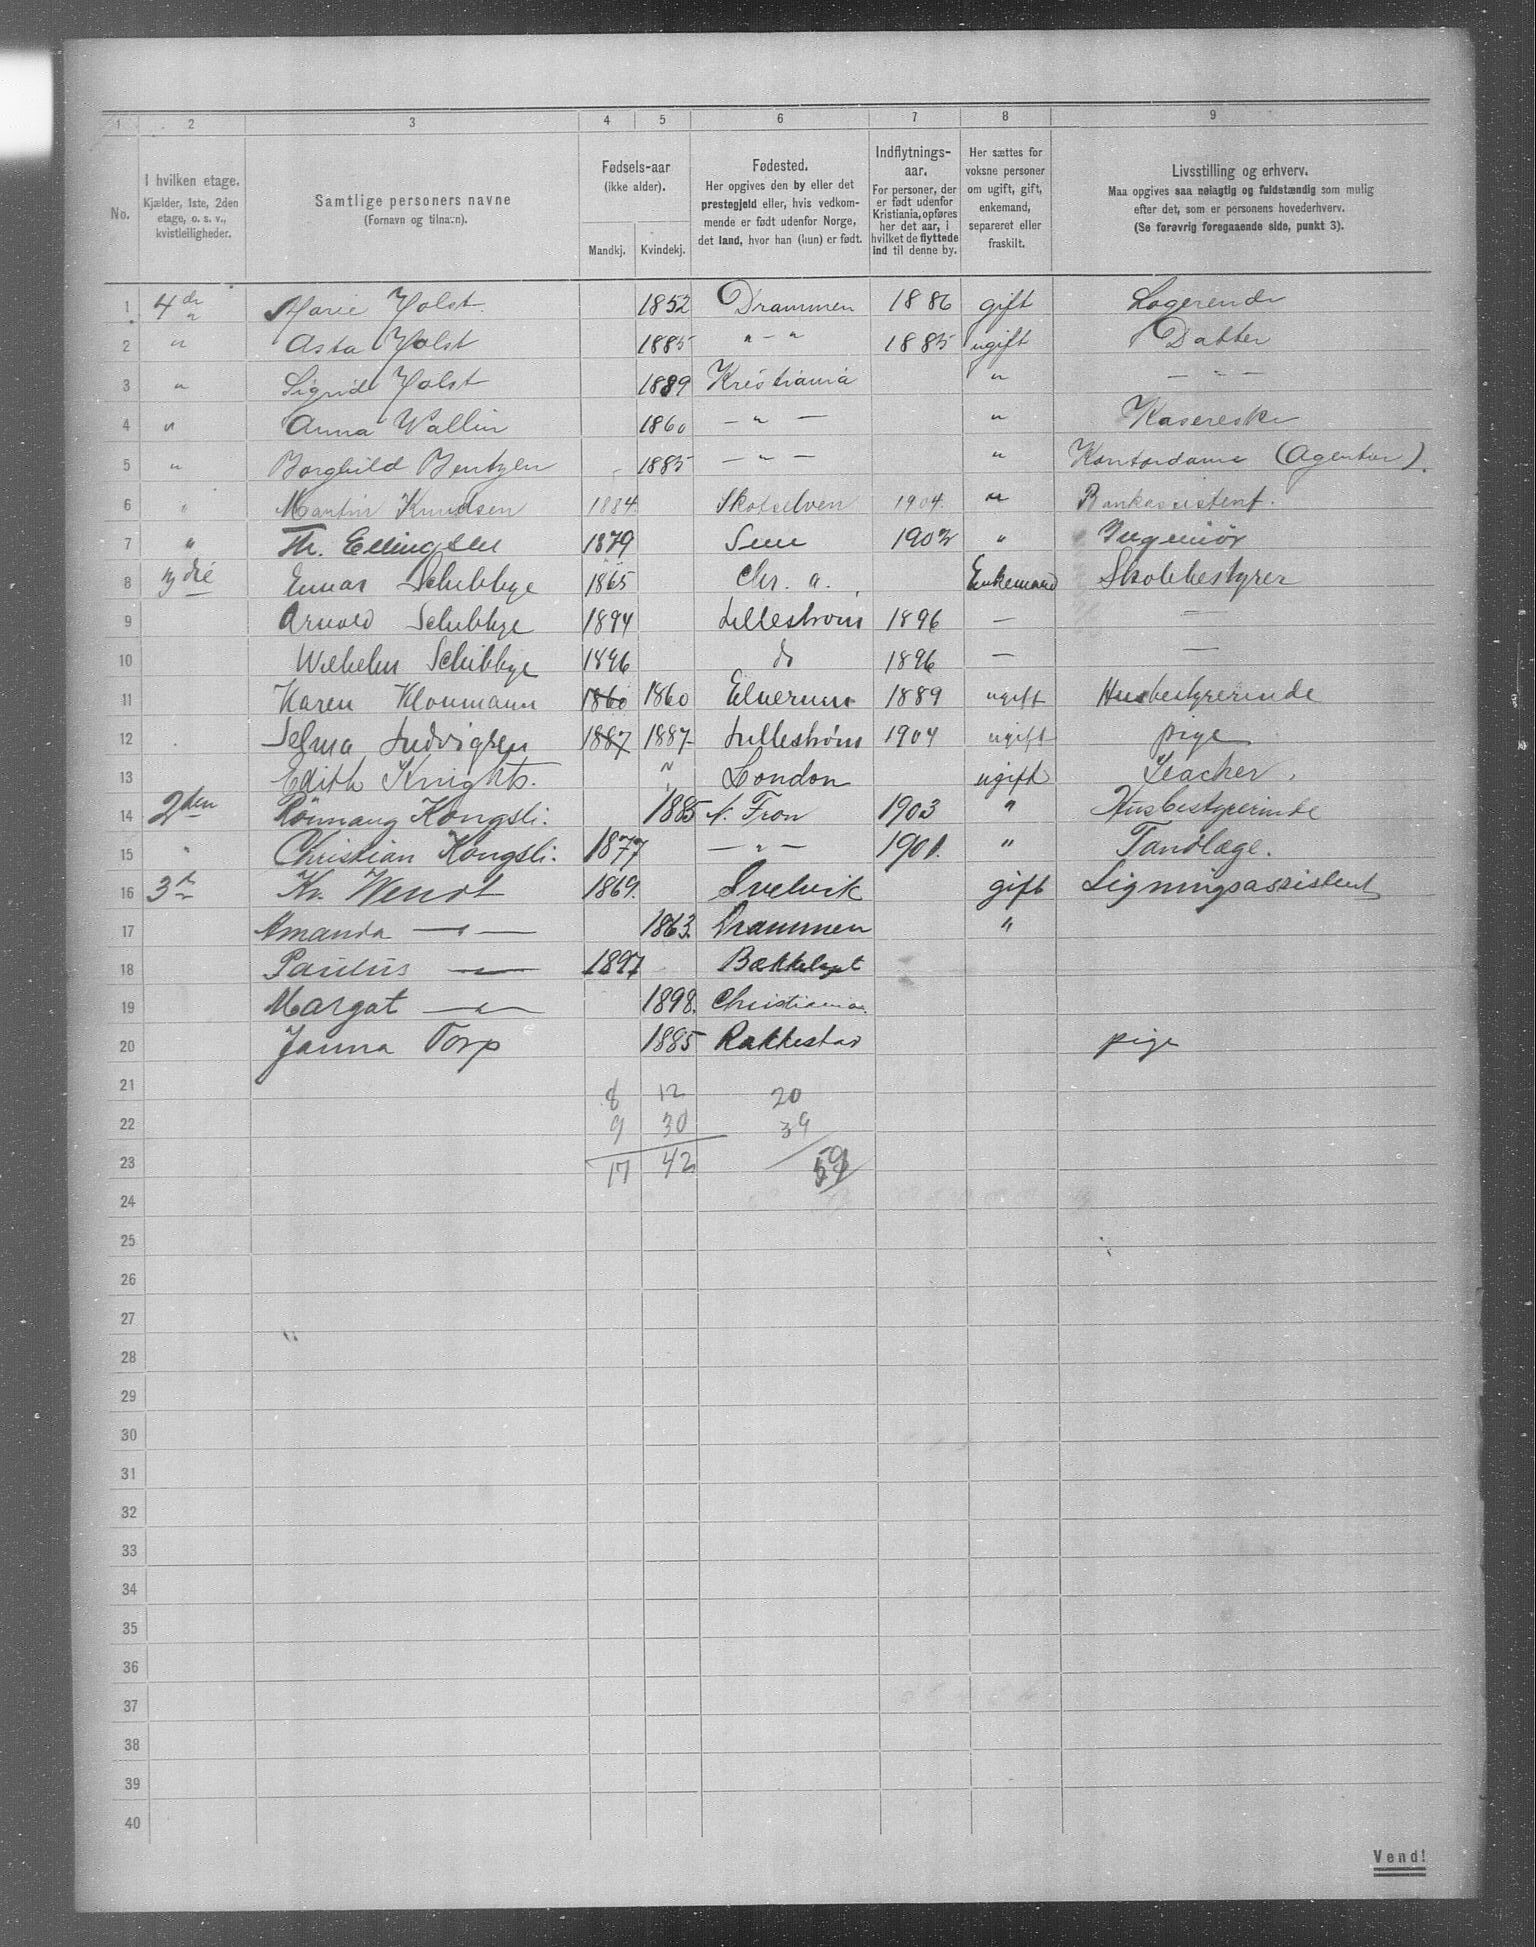 1 2 3 4 5 6 7 8 9
No.
I hvilken etage.
Kjælder, 1ste, 2den
etage, o. s. v.,
kvistleiligheder.
Samtlige personers navne
(Fornavn og tilnavn).
Fødsels-aar
(ikke alder).
Mandkj. Kvindekj.
Fødested.
Her opgives den by eller det
prestegjeld eller, hvis vedkom-
mende er født udenfor Norge,
det land, hvor han (hun) er født.
Indflytnings-
aar.
For personer, der
er født udenfor
Kristiania, opføres
her det aar, i
hvilket de flyttede
ind til denne by.
Her sættes for
voksne personer
om ugift, gift,
enkemand,
separeret eller
fraskilt.
Livsstilling og erhverv.
Maa opgives saa nøiagtig og fuldstændig som mulig
efter det, som er personens hovederhverv.
(Se forøvrig foregaaende side, punkt 3).
1 4de Marie Holst 1852 Drammen 1886 gift Logerende
2 " Asta Holst 1885 " - " 1885 ugift Datter
3 " Sigrid Holst 1889 Kristiania " — " —
4 " Anna Wallin 1860 — " — " Kasererske
5 " Borghild Bentzen 1885 — " — " Kontordame (Agentur).
6 " Martin Knudsen 1884 Skotselven 1904. " Bankassistent.
7 " Th. Ellingsen 1879 Sem 1902 " Ingeniør
8 3die Einar Schibbye 1865 Chr. a. Enkemand Skolebestyrer
9 Arvold Schibbye 1894 Lillestrøm 1896 — —
10 Wilhelm Schibbye 1896 do 1896 — —
11 Karen Kloumann 1860 1860 Elverum 1889 ugift Husbestyrerinde
12 Selma Ludvigsen 1887 1887 Lillestrøm 1904 ugift pige
13 Edith Knights. " London ugift Teacher.
14 2den Rönnaug Kongsli. 1885 N. Fron 1903 " Husbestyrerinde
15 " Christian Kongsli. 1877 — " — 1901. " Tandlæge.
16 3die Kr. Wendt 1869. Svelvik gift Ligningsassistent
17 Amanda — " — 1863. Drammen "
18 Paulus — " — 1897 Bækkelaget
19 Margot — " — 1898. Christiania.
20 Janna Torp 1885 Rakkestad pige
21 8 12 20
22 9 30 39
23 17 42 59
24
25
26
27
28
29
30
31
32
33
34
35
36
37
38
39
40
Vend!